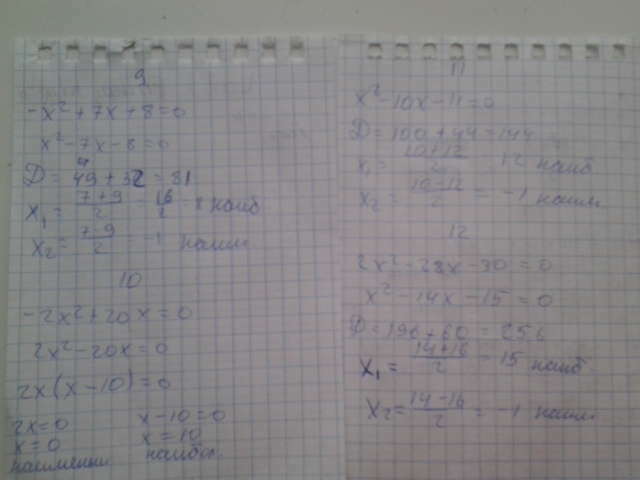 9
-x² + 7x + 8 = 0
x² - 7x - 8 = 0
D = 49 + 32 = 81
x₁ = (7+9)/2 = 16/2 = наиб
x₂ = (7-9)/2 = -1 наим
10
-2x² + 20x = 0
2x² - 20x = 0
2x(x - 10) = 0
2x = 0 x - 10 = 0
x = 0 x = 10
наименьш наибол.
11
x² - 10x - 11 = 0
D = 100 + 44 = 144
x₁ = (10+12)/2 наиб
x₂ = (10-12)/2 = -1 наим
12
2x² - 28x - 30 = 0
x² - 14x - 15 = 0
D = 196 + 60 = 256
x₁ = (14+16)/2 = 15 наиб
x₂ = (14-16)/2 = -1 наим